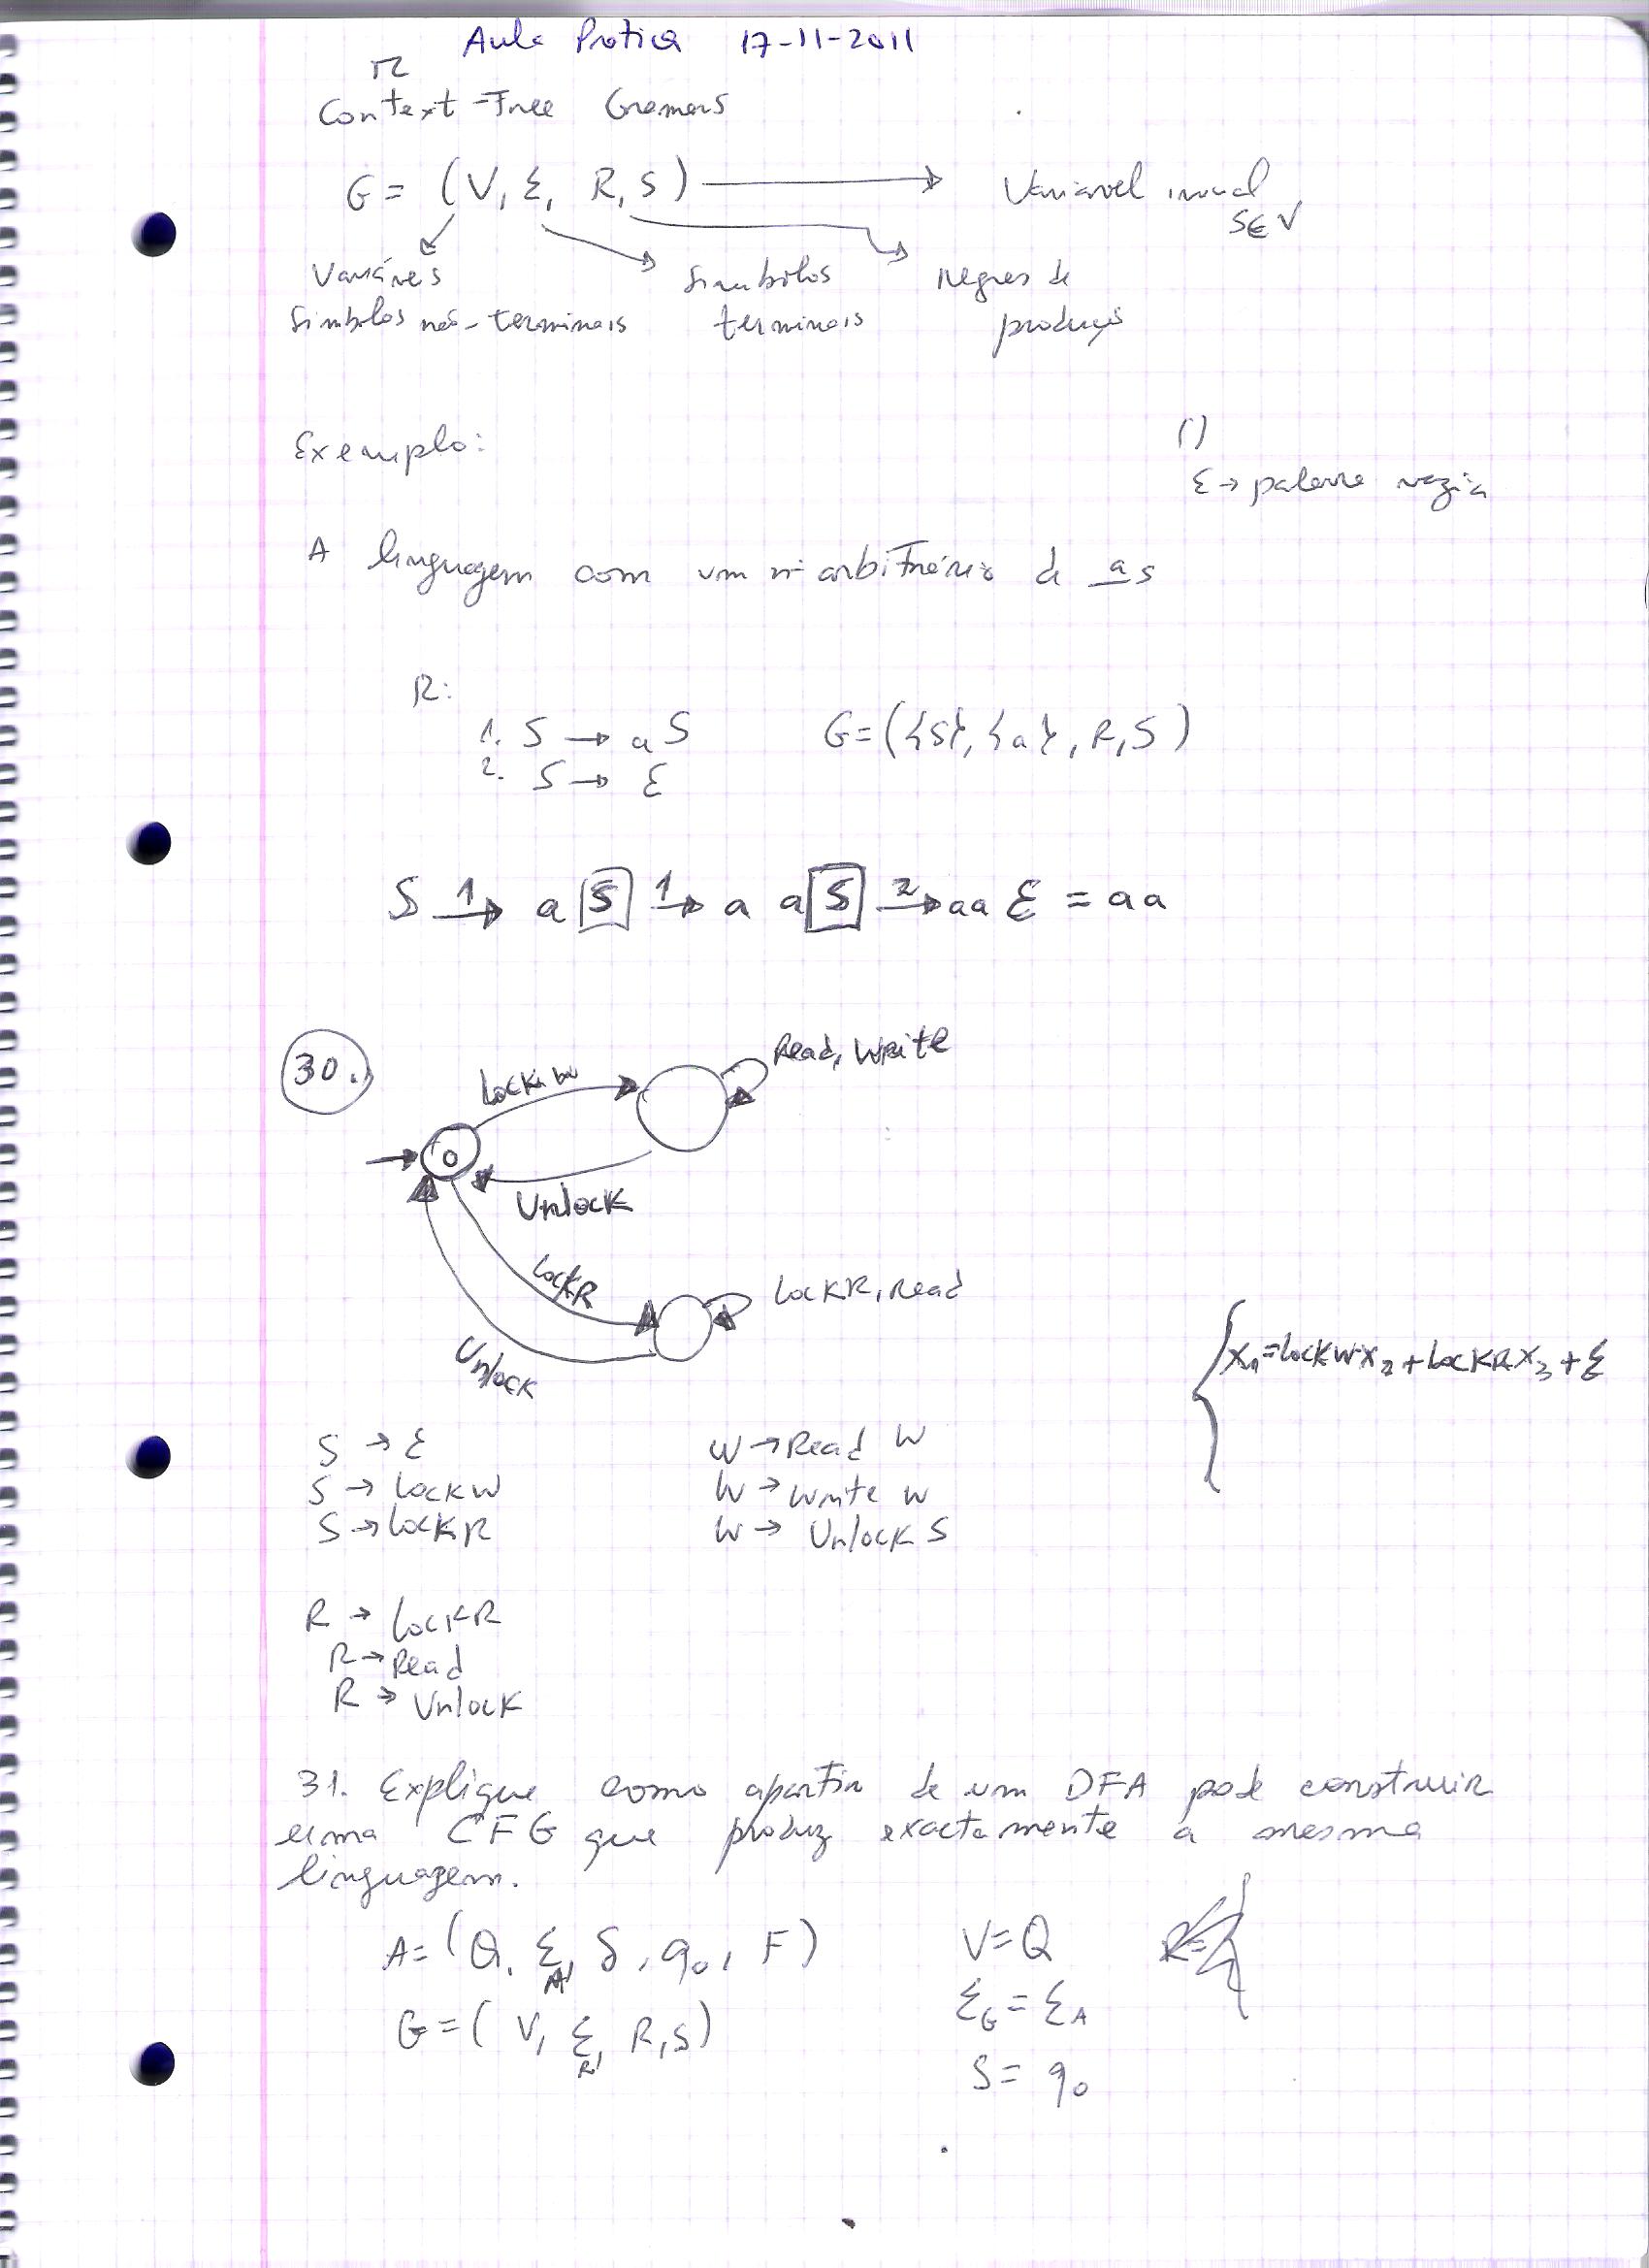 Aula Pratica 17-11-2011
Context-Free Gramars
G = (V, Σ, R, S) → Variavel inicial
S ∈ V
Variáveis
Simbolos não-terminais
Simbolos
terminais
regras de
produção
Exemplo:
()
ε → palavra vazia
A linguagem com um nº arbitrário de as
R:
1. S → aS
2. S → ε
G = ({S}, {a}, R, S)
S 1→ a S 1→ a a S 2→ aa ε = aa
30.
LockW
Read, Write
0
Unlock
LockR
LockR, Read
Unlock
X1 = LockW X2 + LockR X3 + ε
S → ε
S → LockW
S → LockR
W → Read W
W → Write W
W → Unlock S
R → LockR
R → Read
R → Unlock
31. Explique como apartir de um DFA pode construir
uma CFG que produz exactamente a mesma
linguagem.
A = (Q, ΣA, δ, q0, F)
G = (V, Σ, R, S)
V = Q
ΣG = ΣA
S = q0